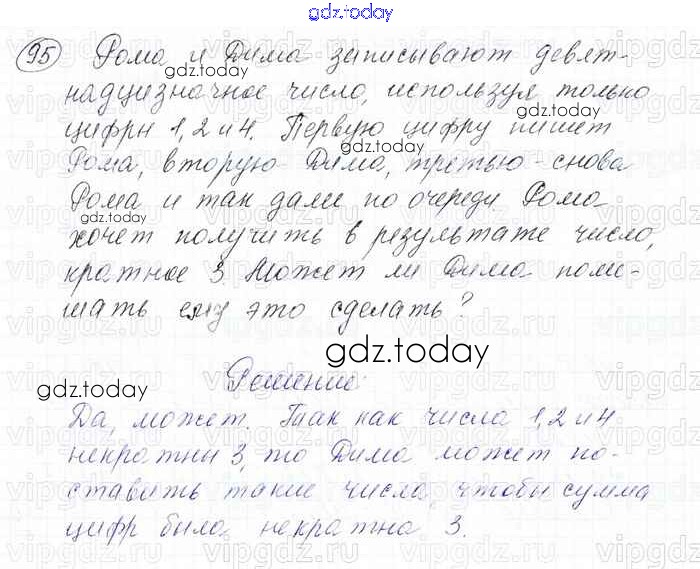 gdz.today
95 Рома и Дима записывают девят-
gdz.today
надцизначное число, используя только
gdz.today
цифры 1, 2 и 4. Первую цифру пишет
gdz.today
Рома, вторую - Дима, третью - снова
Рома и так дали по очереди Рома
gdz.today
хочет получить в результате число,
кратное 3. Может ли Дима поме-
шать ему это сделать?
gdz.today
gdz.today
Решение:
Да, может. Так как числа 1, 2 и 4
некратны 3, то Дима может по-
ставить такие числа, чтобы сумма
цифр была некратна 3.